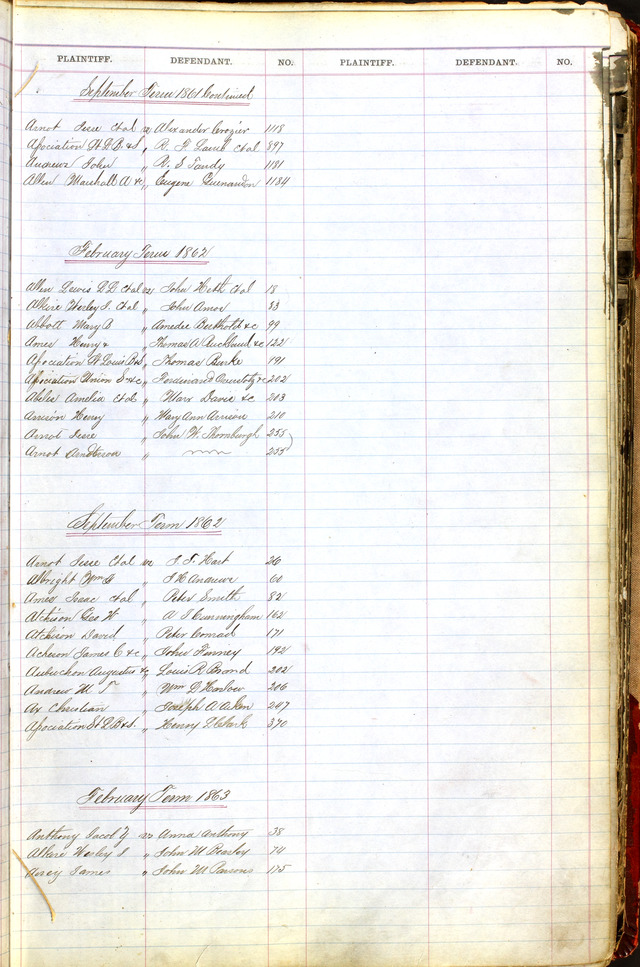 PLAINTIFF. DEFENDANT. NO. PLAINTIFF. DEFENDANT. NO.
September Term 1861 Continued
Arnot Jesse etal vs Alexander Crozier 1118
Association St L B & S " R. F. etal 897
Andrews John " R. S. Tandy 1181
Allen Marshall A &c " Eugene Guenandon 1184
February Term 1862
Allen Lewis etal vs John etal 18
Alkire Wesley S. etal " John Amos 83
Abbott Mary A " Amedee Berthold &c 99
Ames Henry & " Thomas A Buckland &c 122
Association St Louis B & S " Thomas Burke 191
Association Union S &c " Ferdinand &c 202
Abeles Amelia etal " Marx Davis &c 203
Arrison Henry " Mary Ann Arrison 210
Arnot Jesse " John W. Thornburgh 255
Arnot " 255
September Term 1862
Arnot Jesse etal vs S. F. Hart 26
Albright Wm G " J H Andrews 60
Ames Isaac etal " Peter Smith 82
Atchison Geo W " A S Cunningham 162
Atchison David " Peter Conrad 171
Acheson James C &c " John Finney 192
Aubuchon Augustus &c " Louis R Brand 202
Andrew M T " Wm D Harlow 206
Ax Christian " Joseph A Aiken 247
Association St L B & S. " Henry L Clark 370
February Term 1863
Anthony Jacob Z vs Anna Anthony 38
Alkire Wesley S " John M Beasley 74
James " John M Parsons 175